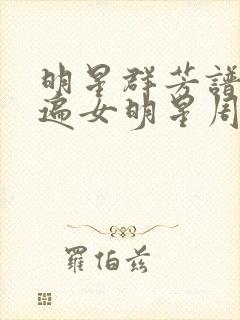 明星群芳譜
遍女明星周
羅伯茲